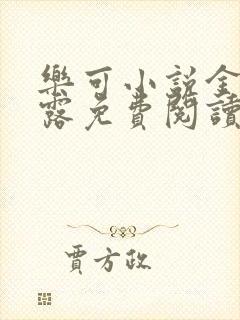 樂可小說全
露免費閱讀
賈方政